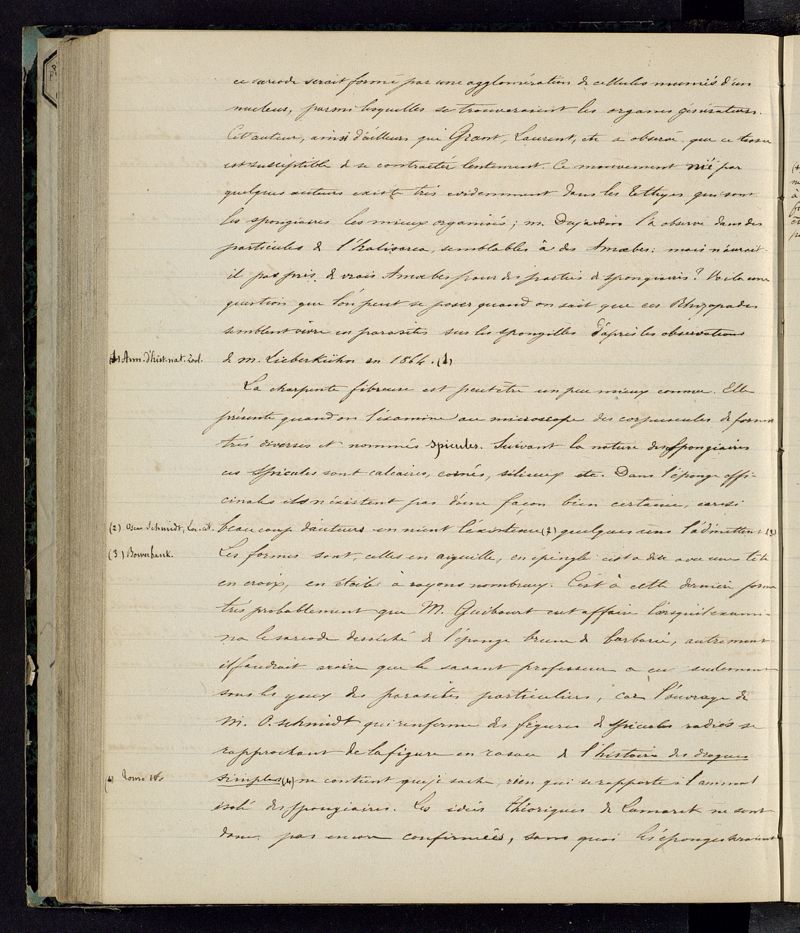 ce sarcode serait formé par une agglomération de cellules munies d'un
nucleus, parmi lesquelles se trouveraient les organes générateurs.
Cet auteur, ainsi d'ailleurs que Grant, Laurent, etc a observé que ce tissu
est susceptible de se contracter lentement. Ce mouvement nié par
quelques auteurs existe très evidemment dans les Téthyes qui sont
les spongiaires les mieux organisés; M. Dujardin l'a observé dans des
particules de l'halisarca, semblables à des Amœbes: mais n'aurait-
il pas pris de vrais Amœbes pour des parties de spongiaires? Voila une
question que l'on peut se poser quand on sait que ces Rhizopodes
semblent vivre en parasites sur les spongilles d'après les observations
(1) Ann. d'hist. nat. Zool. de M. Lieberkühn en 1864. (1)
La charpente fibreuse est peut être un peu mieux connue. Elle
présente quand on l'examine au microscope des corpuscules de formes
très diverses et nommés spicules. Suivant la nature des spongiaires
ces spicules sont calcaires, cornés, siliceux etc. Dans l'éponge offi-
cinale ils n'existent pas d'une façon bien certaine, aussi
(2) Oscar Schmidt, Loc. cit. beaucoup d'auteurs en nient l'existence (2) quelques uns l'admettent (3)
(3) Bowerbank. Les formes sont, celles en aiguille, en épingle c'est à dire avec une tête
en croix, en étoile à rayons nombreux. C'est à cette dernière forme
très probablement que M. Guibourt eut affaire lorsqu'il exami-
na le sarcode desséché de l'éponge brune de barbarie, autrement
il faudrait croire que le savant professeur a eu seulement
sous les yeux des parasites particuliers, car l'ouvrage de
M. O. Schmidt qui renferme des figures de spicules radiés se
rapprochant de la figure en rosace de l'histoire des drogues
(4) simples (4) ne contient que je sache, rien qui se rapporte à l'animal
isolé des spongiaires. Les idées théoriques de Lamarck ne sont
donc pas encore confirmées, sans quoi les éponges seraient